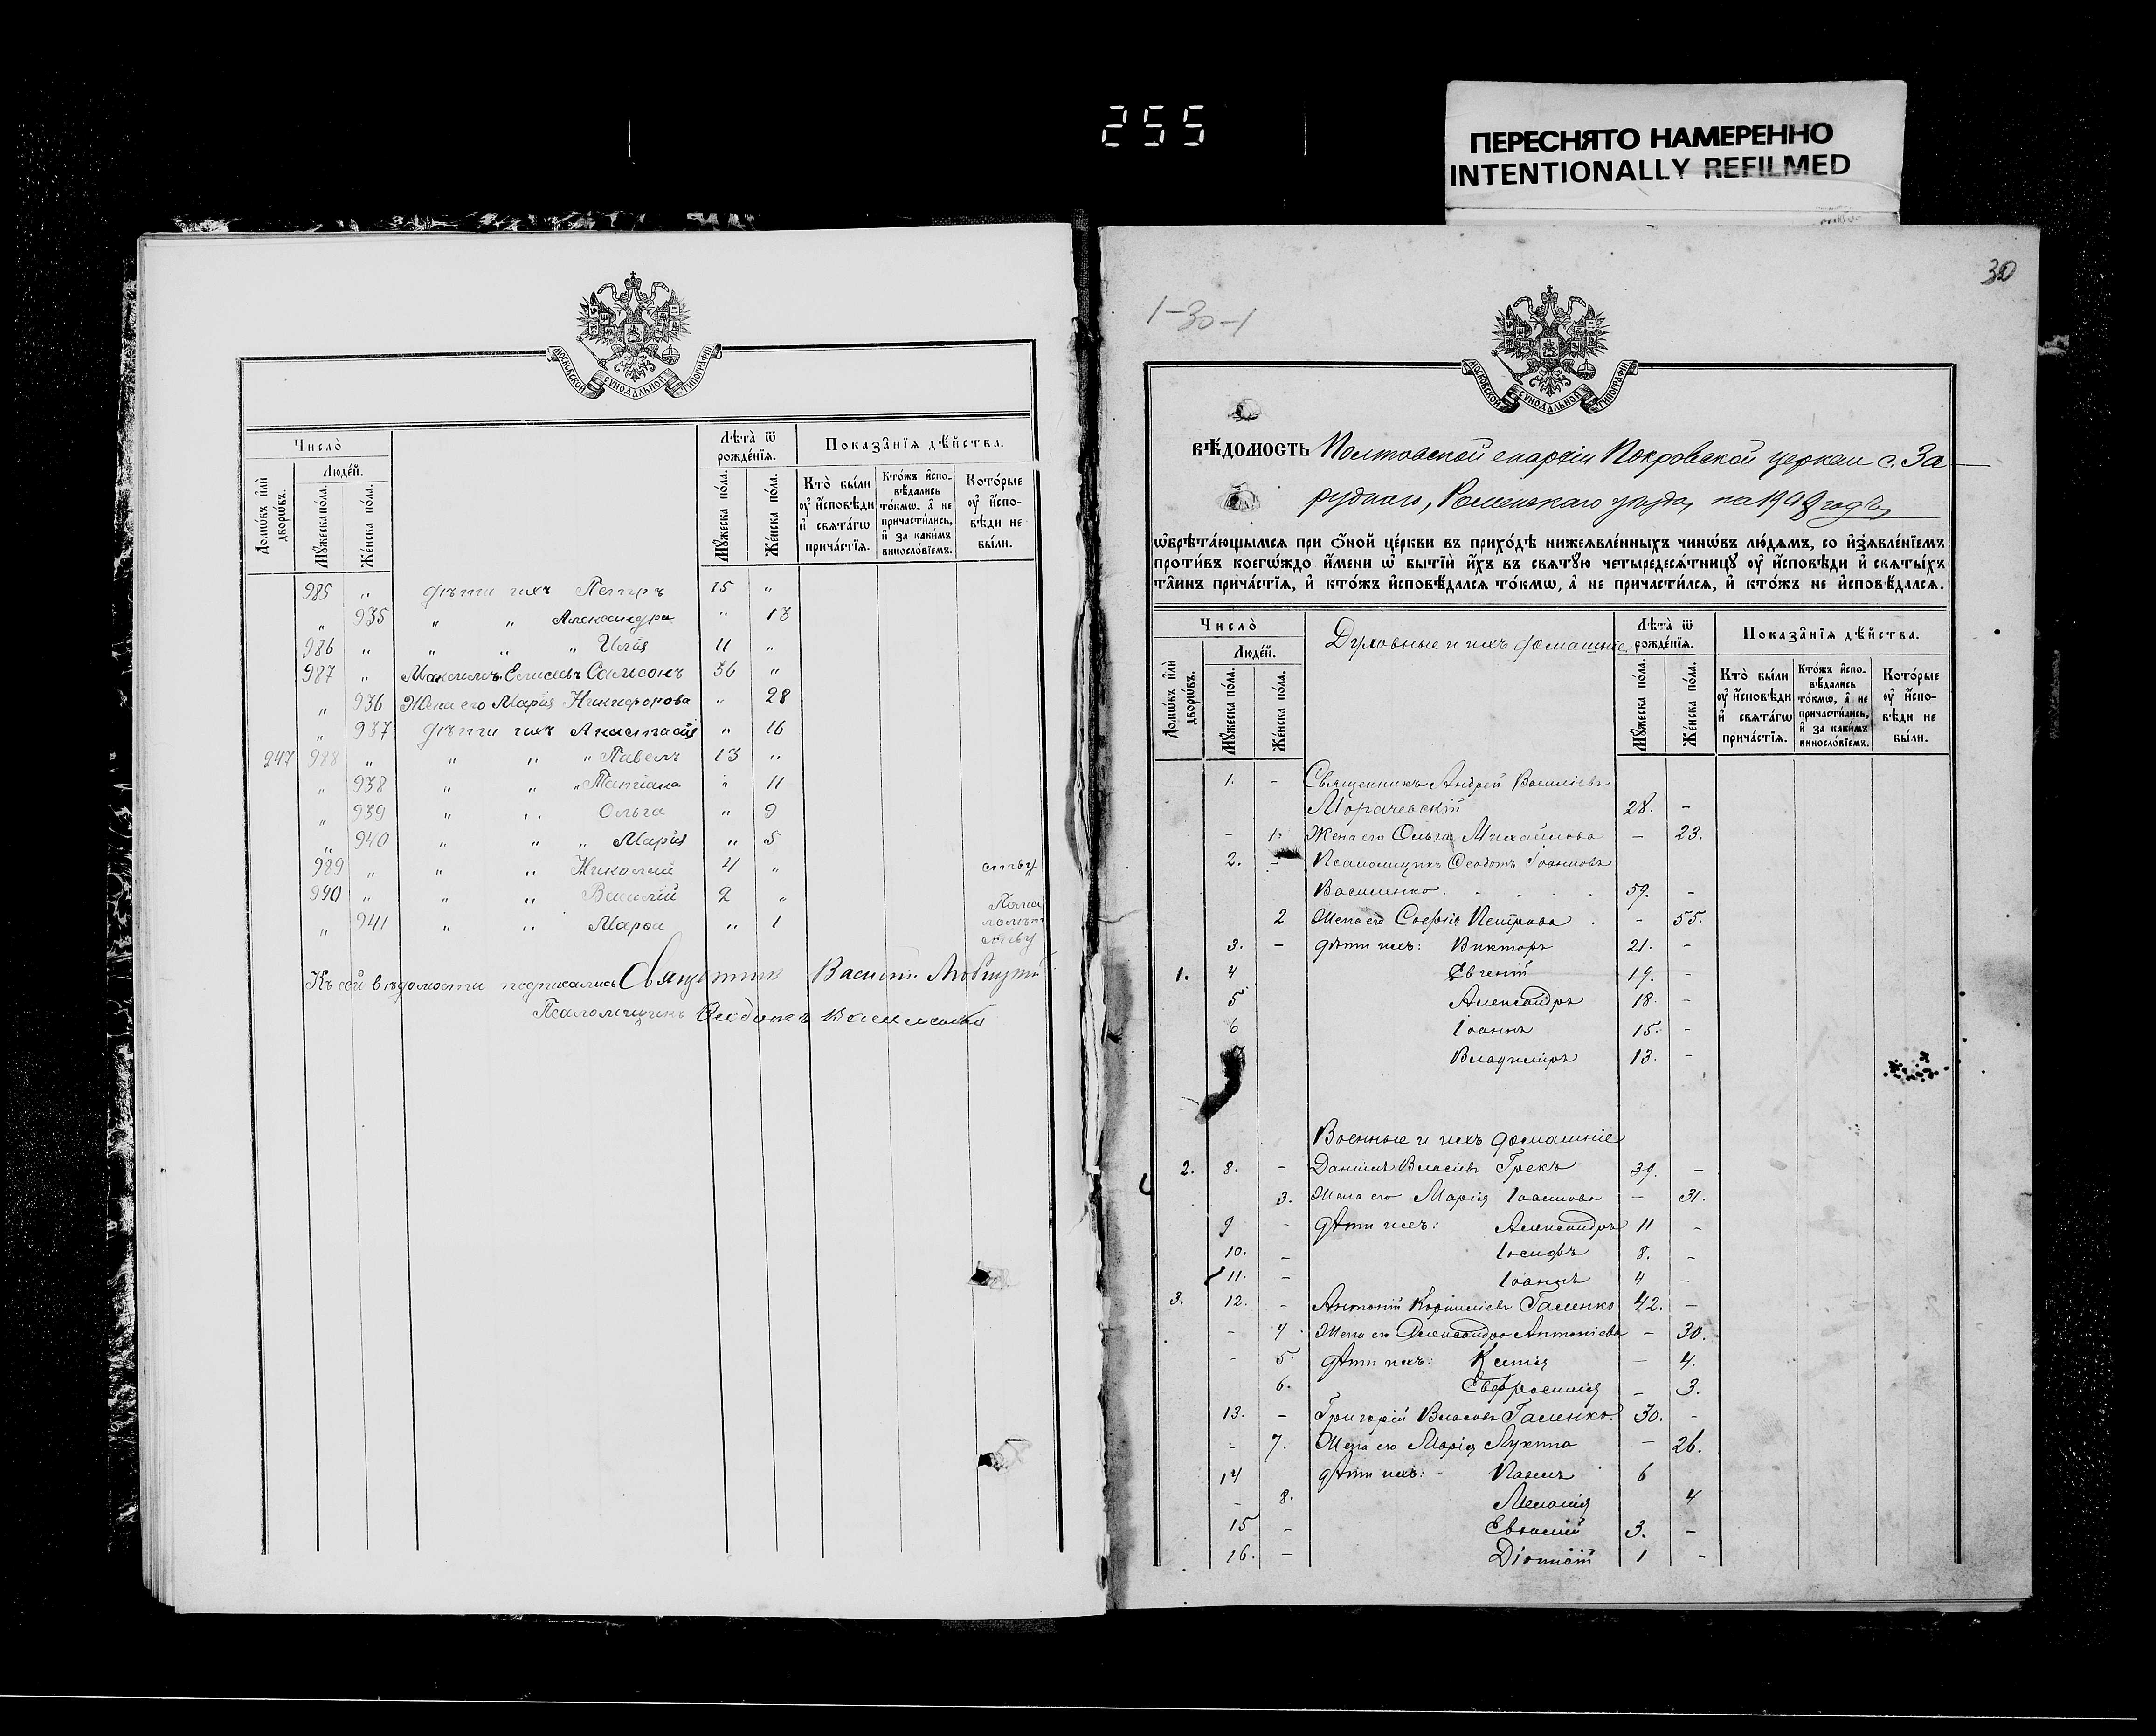 255
ПЕРЕСНЯТО НАМЕРЕННО
INTENTIONALLY REFILMED
МОСКОВСКОЙ СѴНОДАЛЬНОЙ ТИПОГРАФІИ
Число̀
Домѡ́въ и҆лѝ дворѡ́въ.
Люде́й.
Мꙋ́жеска по́ла.
Же́нска по́ла.
Лѣ́та ѿ рожде́нїѧ.
Мꙋ́жеска по́ла.
Же́нска по́ла.
Показа̂нїѧ дѣ́йства.
Кто̀ бы́ли ᲂу҆ и҆́сповѣди и҆ свѧта́гѡ прича́стїѧ.
Кто́жъ и҆спо-вѣ́дались то́кмѡ, а҆ не причасти́лись, и҆ за каки́мъ винносло́вїемъ.
Кото́рые ᲂу҆ и҆́спо-вѣди не бы́ли.
985 " дѣти ихъ Петръ 15 "
" 935 " " Александра " 13
986 " " " " Илія 11 "
987 " Максимъ Елисѣевъ Самсонъ 36 "
" 936 Жена его Марія Никифорова " 28
" 937 дѣти ихъ Анастасія " 16
247 988 " " " " Павелъ 13 "
" 938 " " " Татіана " 11
" 939 " " Ольга " 9
" 940 " " " Марія " 5
989 " " " Николай 4 "
990 " " " Василій 2 "
" 941 " " Марѳа " 1
Къ сей вѣдомости подписались Священникъ Василій
Псаломщикъ Ѳеодотъ Василенко
30
1-30-1
МОСКОВСКОЙ СѴНОДАЛЬНОЙ ТИПОГРАФІИ
ВѢ́ДОМОСТЬ Полтавской епархіи Покровской церкви с. За-
руднаго, Роменскаго уѣзда, на 1908 годъ,
ѡ҆брѣта́ющымсѧ при ѻ҆́ной це́ркви въ прихо́дѣ нижеѧвле́нныхъ чинѡ́въ лю́дѧмъ, со и҆з̾ѧвле́нїемъ
проти́въ коегѡ́ждо и҆́мени ѡ҆ бытїѝ и҆́хъ въ свѧтꙋ́ю четыредесѧ́тницꙋ ᲂу҆ и҆́сповѣди и҆ свѧты́хъ
та̂инъ прича́стїѧ, и҆ кто́жъ и҆сповѣ́далсѧ то́кмѡ, а҆ не причасти́лсѧ, и҆ кто́жъ не и҆сповѣ́далсѧ.
Число̀
Домѡ́въ и҆лѝ дворѡ́въ.
Люде́й.
Мꙋ́жеска по́ла.
Же́нска по́ла.
Духовные и ихъ домашніе
Лѣ́та ѿ рожде́нїѧ.
Мꙋ́жеска по́ла.
Же́нска по́ла.
Показа̂нїѧ дѣ́йства.
Кто̀ бы́ли ᲂу҆ и҆́сповѣди и҆ свѧта́гѡ прича́стїѧ.
Кто́жъ и҆спо-вѣ́дались то́кмѡ, а҆ не причасти́лись, и҆ за каки́мъ винносло́вїемъ.
Кото́рые ᲂу҆ и҆́спо-вѣди не бы́ли.
1. - Священникъ Андрей Василіевъ
Морачевскій 28. -
- 1. Жена его Ольга Михайлова - 23.
2. - Псаломщикъ Ѳеодотъ Іоанновъ
Василенко 59. -
2 Жена его Софія Петрова - 55.
3. - дѣти ихъ: Викторъ 21. -
1. 4 Евгеній 19. -
5 Александръ 18. -
6 Іоаннъ 15. -
Владиміръ 13. -
Военные и ихъ домашніе
2. 8. - Даніилъ Власіевъ Грекъ 39. -
3. Жена его Марія Іоаннова - 31.
9 - дѣти ихъ: Александръ 11 -
10. - Іосифъ 8. -
11. - Іоаннъ 4 -
3. 12. - Антоній Корниліевъ Галенко 42. -
- 4 Жена его Александра Антоніева - 30.
- 5. дѣти ихъ: Ксенія - 4.
6. Евфросинія - 3.
13. - Григорій Власовъ Галенко 30. -
- 7. Жена его Марія Лукина - 26.
14 дѣти ихъ: Павелъ 6
- 8. Меланія 4
15 - Евгеній 3. -
16. - 1 -